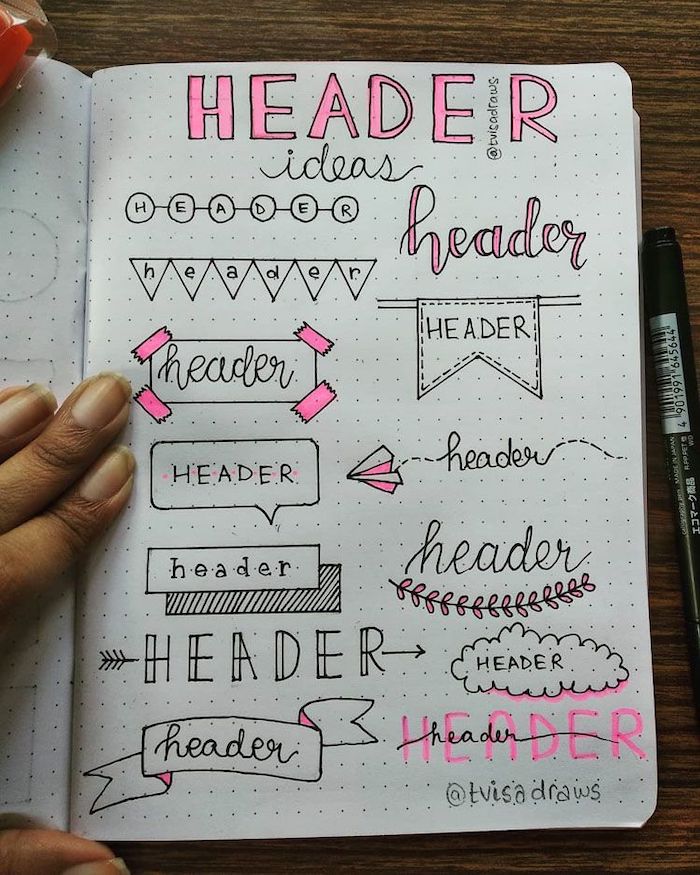 HEADER
@tvisadraws
ideas
HEADER
header
header
HEADER
header
HEADER
header
header
header
HEADER
HEADER
header
HEADER
header
@tvisadraws
4 901991 645644
MADE IN JAPAN
エコマーク商品